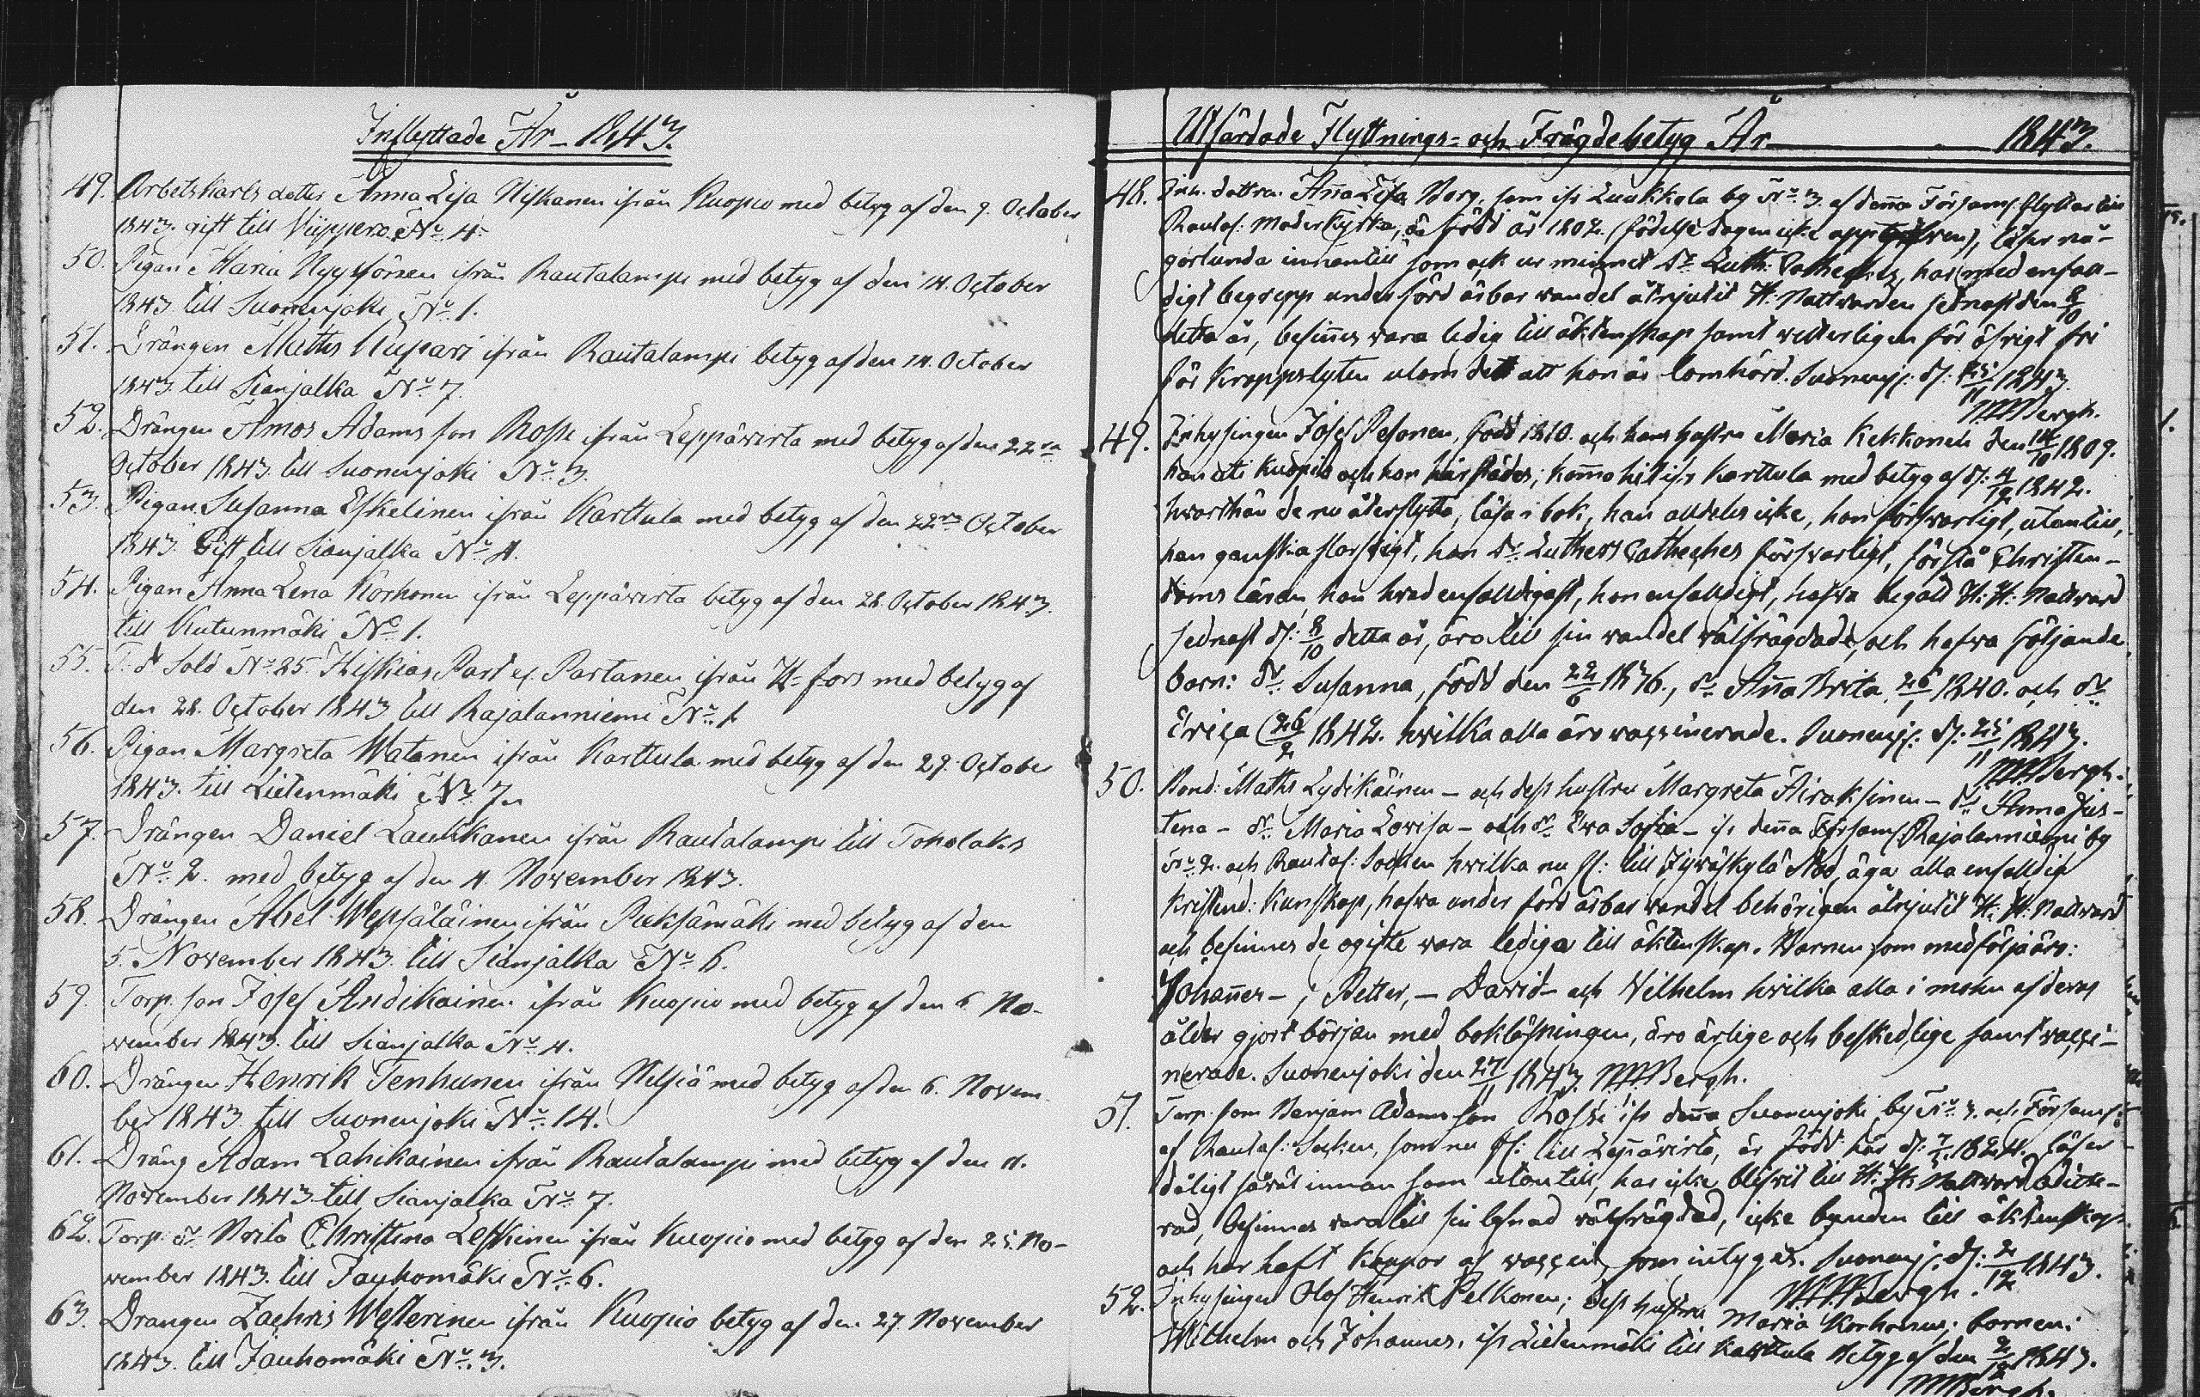 Inflyttade År 1843.
49. Arbetskarls dotter Anna Lisa Niskanen ifrån Kuopio med betyg af den 9. October
1843. gift till Viippero N:o 4.
50. Pigan Maria Nyyssönen ifrån Rautalampi med betyg af den 14. October
1843 till Suonenjoki N:o 1.
51. Drängen Matths Nupari ifrån Rautalampi betyg af den 14. October
1843 till Sianjalka N:o 7.
52. Drängen Amos Adams son Rossi ifrån Leppävirta med betyg af den 22ra
October 1843. till Suonenjoki N:o 3.
53. Pigan Susanna Eskelinen ifrån Karttula med betyg af den 22ra October
1843. Gift till Sianjalka N:o 4.
54. Pigan Anna Lena Korhonen ifrån Leppävirta betyg af den 28. October 1843.
till Kutunmäki N:o 1.
55. F: d Sold N:o 25 Hiskias Part ej. Partanen ifrån H-fors med betyg af
den 28. October 1843 till Rajalanniemi N:o 1.
56. Pigan Margreta Watanen ifrån Karttula med betyg af den 29. October
1843. till Lietenmäki N:o 7.
57. Drängen Daniel Lautikanen ifrån Rautalampi till Toholaks
N:o 2. med betyg af den 4. November 1843.
58. Drängen Abel Wepsäläinen ifrån Pieksämäki med betyg af den
5. November 1843 till Sianjalka N:o 6.
59. Torp. son Josef Andikainen ifrån Kuopio med betyg af den 6 No-
vember 1843. till Sianjalka N:o 4.
60. Drängen Henrik Tenhunen ifrån Nilsiä med betyg af den 6. Novem
ber 1843 till Suonenjoki N:o 14.
61. Dräng Adam Lahikainen ifrån Rautalampi med betyg af den 11.
November 1843 till Sianjalka N:o 7.
62. Torp: dr Brita Christina Leskinen ifrån Kuopio med betyg af den 25. No-
vember 1843. till Jauhomäki N:o 6.
63. Drängen Zachris Westerinen ifrån Kuopio betyg af den 27. November
1843. till Jauhomäki N:o 3.
Utfärdade Flyttnings- och Frägdebetyg År 1843.
48. Inh. dottren Anna Lisa Borg, som ifr Luukkola by N:o 3. af denna Församl. flyttar till
Rautal: Moderkyrka, är född år 1802. (födelse dagen icke uppgifven), läser nå-
gorlunda innantill som ock ur minnet Dr Luth: Catheches, har med enfal-
digt begrepp under förd ärbar wandel åtnjutit H: Nattvarden sednast den 8/10
detta år, befinnes vara ledig till äktenskap samt vitterligen för öfrigt fri
för kroppslyten utom dett att hon är lomhörd. Suonenj: d: 25/11 1843.
MBergh.
49. Inhysingen Josef Pesonen, född 1810. och hans hustru Maria Kekkonen den 14/10 1809.
han uti Kuopio och hon härstädes, komo hit ifr Karttula med betyg af d: 4/12 1842.
hvarthän de nu återflytta, läsa i bok, han alldeles icke, hon försvarligt, utantill,
han ganska sforsvigt, hon Dr Luthers Catheches försvarligt, förstå Christen-
doms läran, han hvad enfalldigast, hon enfalldigt, hafva begått H: H: Nattvard
sednast d: 8/10 detta år, äro till sin wandel välfrägdade, och hafva följande
barn: dr Susanna, född den 22/6 1836., dr Anna Brita, 26/1 1840. och dr
Eriça 26/2 1842. hvilka alla äro vaccinerade. Suonenj: d: 25/11 1843.
MBergh.
50. Bond: Maths Lydikäinen - och dess hustru Margreta Hiroksinen - dr Anna Jus-
tena - dr Maria Lovisa - och dr Eva Sofia - ifr denna Församl Rajalanniemi by
N:o 2. och Rautal: Socken hvilka nu fl: till Jyväskylä Stad, äga alla enfalldig
Kristend: Kunskap, hafva under förd ärbar wandel behörigen åtnjutit H: H: Nattvard
och befinnes de ogifte vara lediga till äktenskap. Barnen som medfölja äro:
Johannes -, Petter, - David - och Vilhelm hvilka alla i mohn af deras
ålder gjort början med bokläsningen, äro ärlige och beskedlige samt vacci-
nerade. Suonenjoki den 27/11 1843. MBergh.
51. Torp: son Benjam Adams son Rossi ifr denna Suonenjoki by N:o 3. och Församl:
af Rautal: Socken, som nu fl: till Leppävirta, är född här d: 7/5 1824. läser
dåligt såväl innan som utantill, har icke blifvit till H: H: Nattvard admitte-
rad, befinnes vara till sin lefnad välfrägdad, icke bunden till äktenskap
och har haft Koppor af vaccin, som intygas. Suonenj: d: 2/12 1843.
MBergh.
52. Inhysingen Olof Henrik Pelkonen; dess hustru Maria Korhonen; barnen:
Wilhelm och Johannes, ifr Lietenmäki till Karttula betyg af den 2/12 1843.
MBergh.